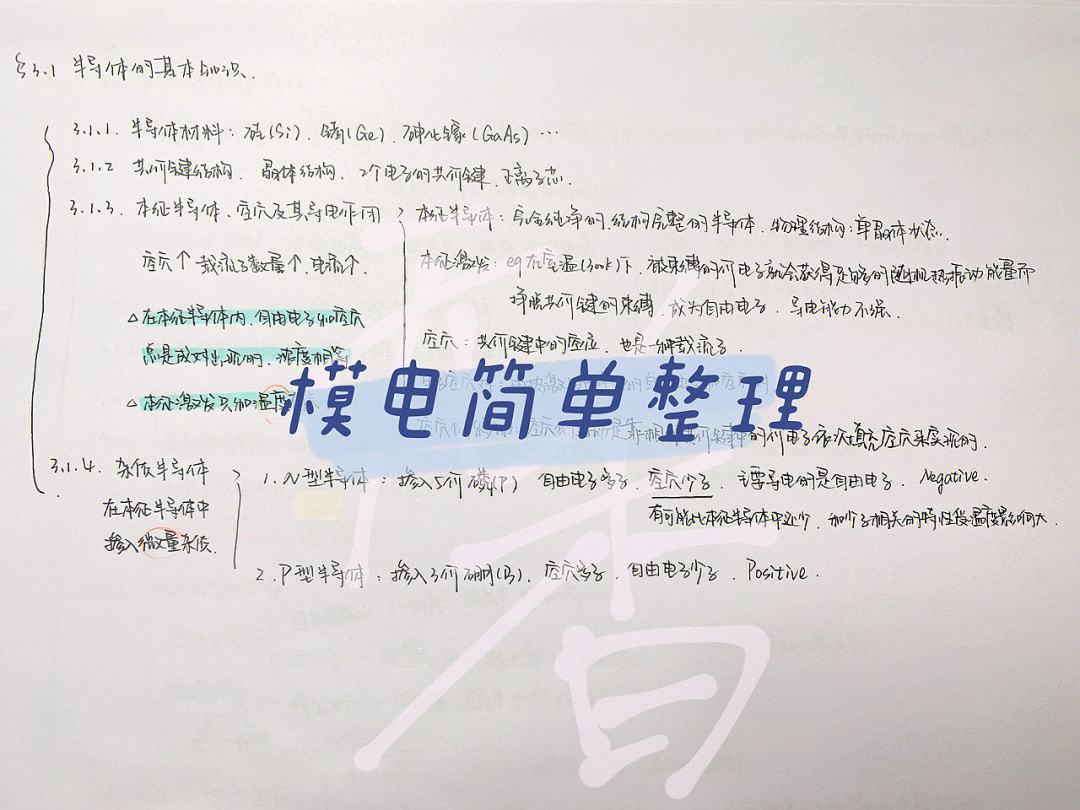 §3.1 半导体的基本知识.
3.1.1. 半导体材料：硅(Si)、锗(Ge)、砷化镓(GaAs)…
3.1.2 共价键结构、晶体结构、2个电子的共价键、正离子芯.
3.1.3. 本征半导体、空穴及其导电作用
空穴↑ 载流子数量↑, 电流↑.
△在本征半导体内, 自由电子和空穴
总是成对出现的, 浓度相等
△本征激发只和温度
本征半导体：完全纯净的、结构完整的半导体. 物理结构：单晶体状态.
本征激发：eg在室温(300k)下, 被束缚的价电子就会获得足够的随机热振动能量而
挣脱共价键的束缚, 成为自由电子, 导电能力不强.
空穴：共价键中的空位, 也是一种载流子.
价电子依次填充空穴来实现的.
模电简单整理
3.1.4. 杂质半导体
在本征半导体中
掺入微量杂质.
1. N型半导体：掺入5价磷(P) 自由电子多子、空穴少子、主要导电的是自由电子、Negative.
有可能比本征半导体中还少, 和少子相关的特性受温度影响大.
2. P型半导体：掺入3价硼(B)、空穴多子、自由电子少子、Positive.